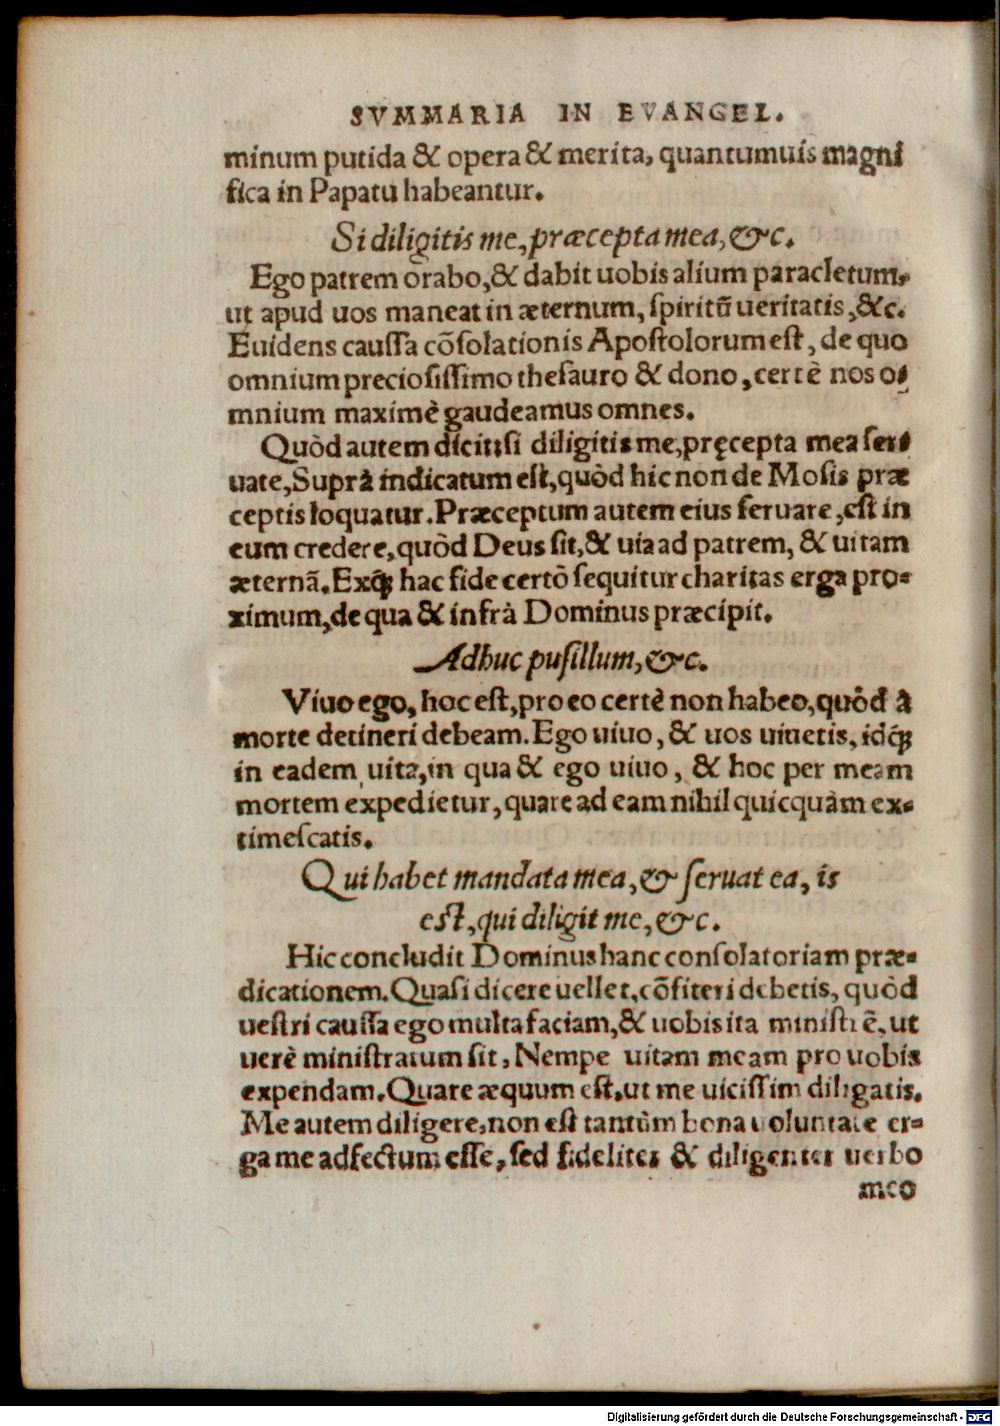 SVMMARIA IN EVANGEL.
minum putida & opera & merita, quantumuis magni
fica in Papatu habeantur.
Si diligitis me, præcepta mea, &c.
Ego patrem orabo, & dabit uobis alium paracletum,
ut apud uos maneat in æternum, ſpiritũ ueritatis, &c.
Euidens cauſſa cõſolationis Apoſtolorum eſt, de quo
omnium precioſiſſimo theſauro & dono, certè nos o-
mnium maximè gaudeamus omnes.
Quòd autem dicit: ſi diligitis me, pręcepta mea ſer-
uate, Suprà indicatum eſt, quòd hic non de Moſis præ
ceptis loquatur. Præceptum autem eius ſeruare, eſt in
eum credere, quòd Deus ſit, & uia ad patrem, & uitam
æternã. Exq́; hac fide certò ſequitur charitas erga pro-
ximum, de qua & infrà Dominus præcipit.
Adhuc puſillum, &c.
Viuo ego, hoc eſt, pro eo certè non habeo, quòd à
morte detineri debeam. Ego uiuo, & uos uiuetis, idq́;
in eadem uita, in qua & ego uiuo, & hoc per meam
mortem expedietur, quare ad eam nihil quicquàm ex-
timeſcatis.
Qui habet mandata mea, & ſeruat ea, is
eſt, qui diligit me, &c.
Hic concludit Dominus hanc conſolatoriam præ-
dicationem. Quaſi dicere uellet, cõfiteri debetis, quòd
ueſtri cauſſa ego multa faciam, & uobis ita miniſtrẽ, ut
uerè miniſtratum ſit, Nempe uitam meam pro uobis
expendam. Quare æquum eſt, ut me uiciſſim diligatis.
Me autem diligere, non eſt tantùm bona uoluntate er-
ga me adfectum eſſe, ſed fideliter & diligenter uerbo
meo
Digitalisierung gefördert durch die Deutsche Forschungsgemeinschaft - DFG